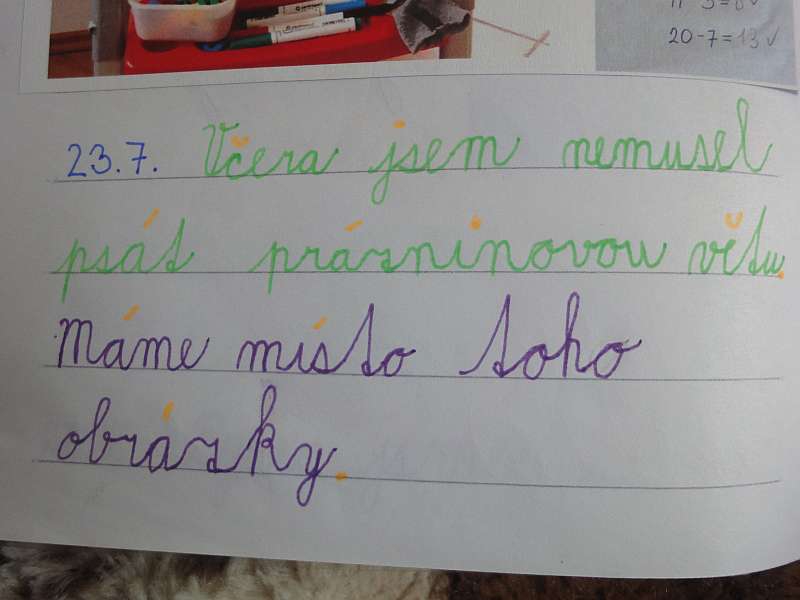 20-7=13✓
23.7. Včera jsem nemusel
psát prázninovou větu.
Máme místo toho
obrázky.